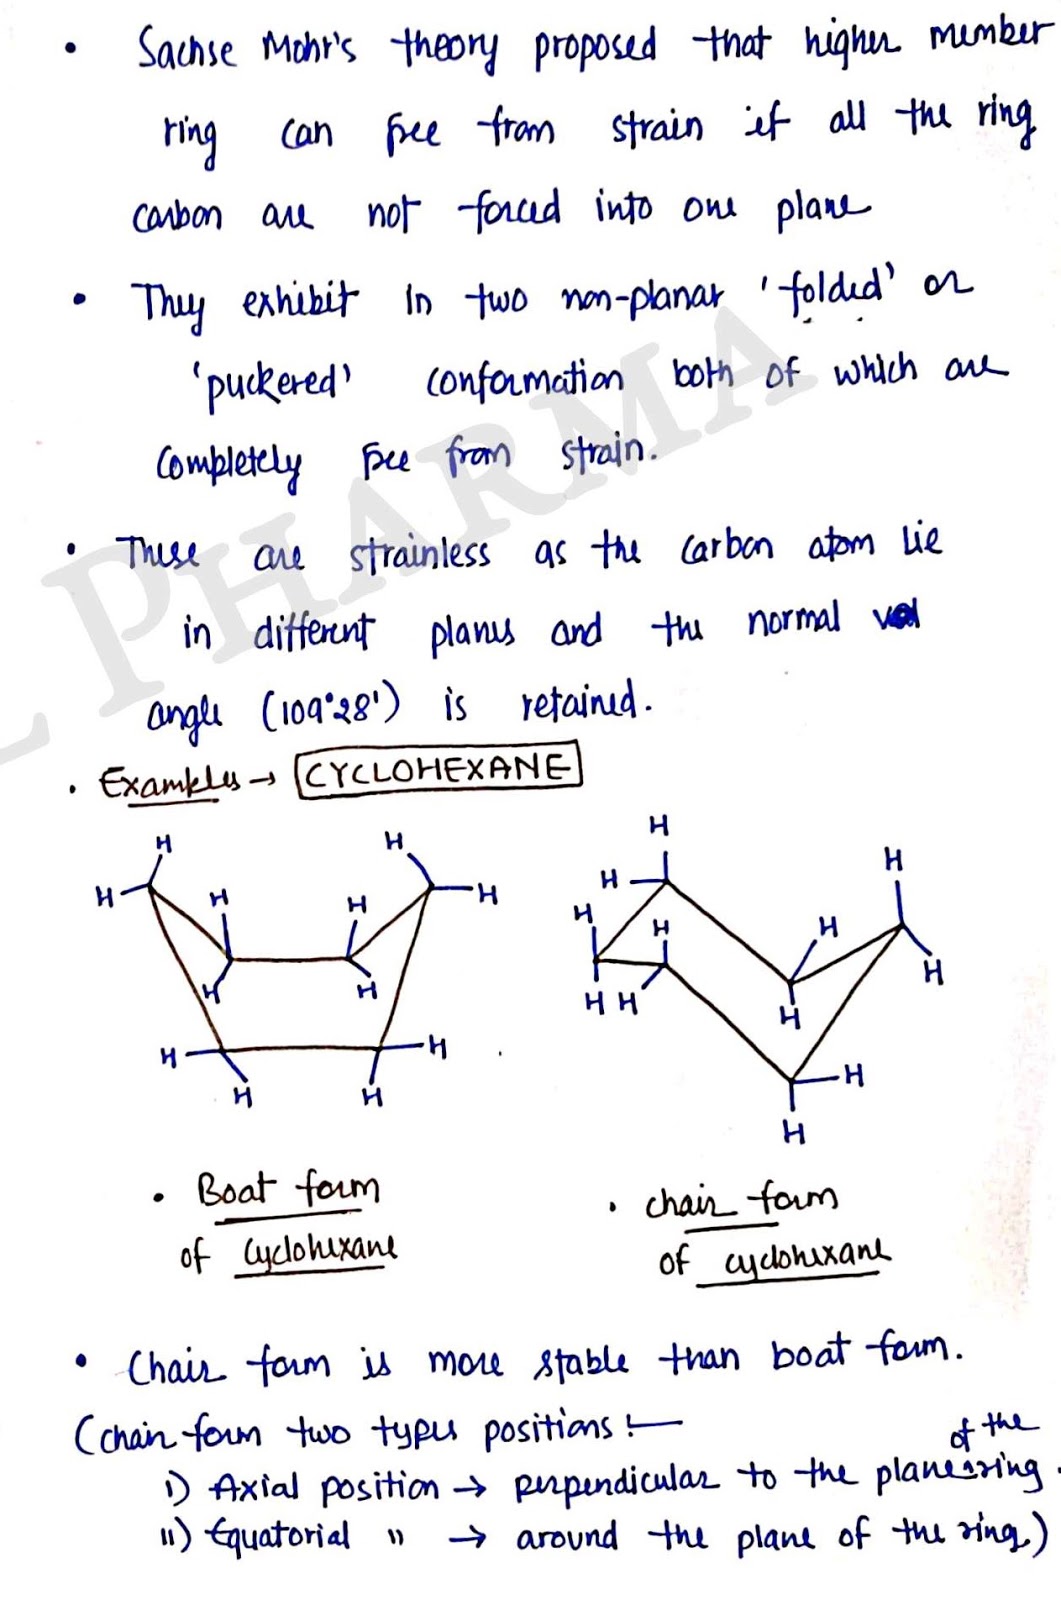 • Sachse Mohr's theory proposed that higher member
ring can free from strain if all the ring
carbon are not forced into one plane
• They exhibit in two non-planar 'folded' or
'puckered' conformation both of which are
completely free from strain.
• These are strainless as the carbon atom lie
in different planes and the normal
angle (109°28') is retained.
• Examples → CYCLOHEXANE
H H H H H H
H H
H H
H H
H H H H H H
H H
H H H H
H H
• Boat form
of cyclohexane
• chair form
of cyclohexane
• Chair form is more stable than boat form.
(chair form two types positions :—
i) Axial position → perpendicular to the plane of the ring.
ii) Equatorial " → around the plane of the ring.)
L PHARMA